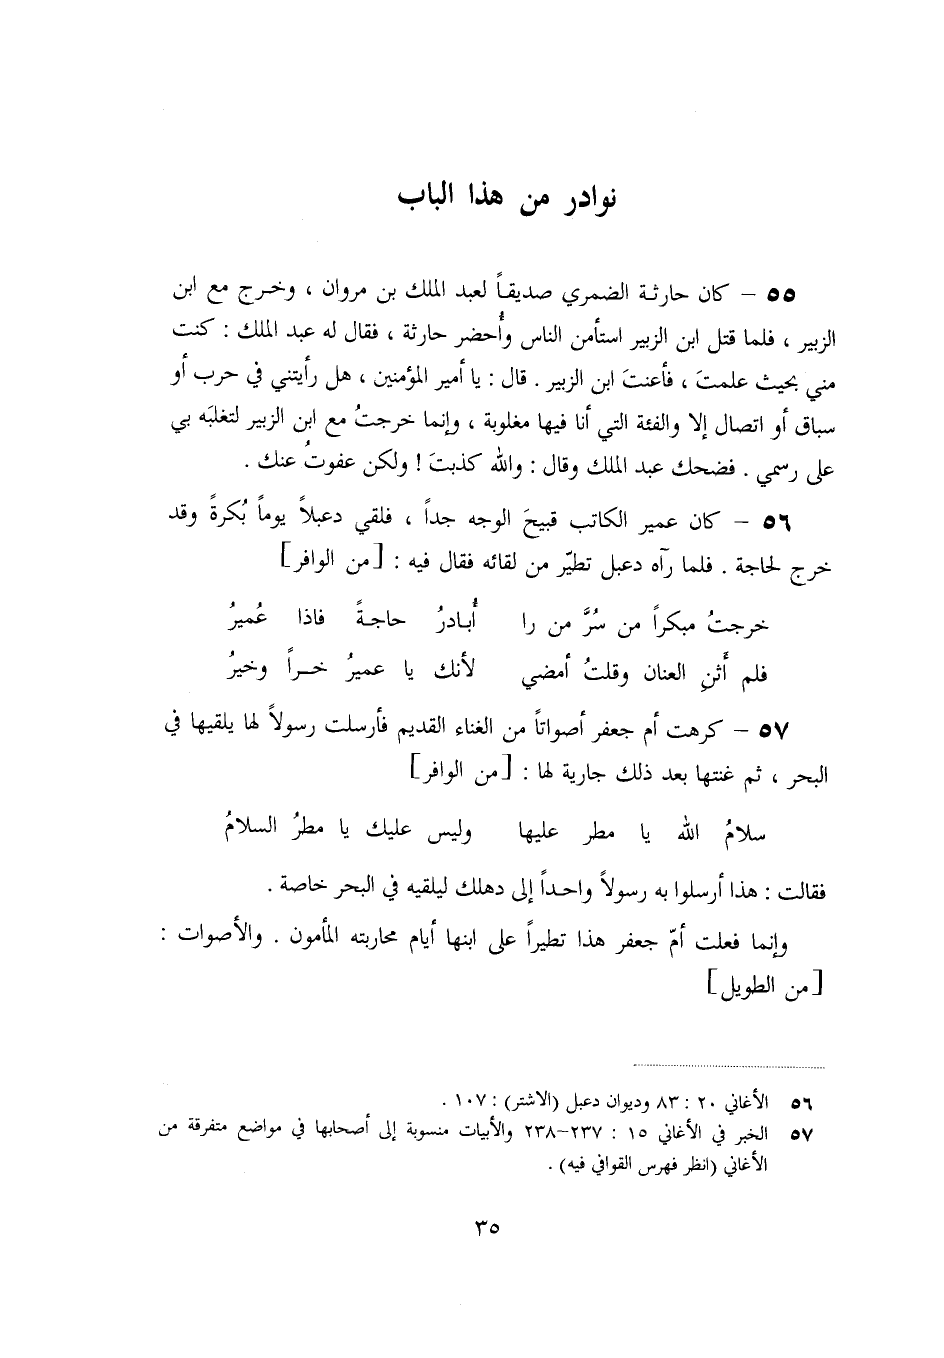 نوادر من هذا الباب
٥٥ – كان حارثة الضمري صديقاً لعبد الملك بن مروان ، وخرج مع ابن
الزبير ، فلما قتل ابن الزبير استأمن الناس وأُحضر حارثة ، فقال له عبد الملك : كنت
مني بحيث علمتَ ، فأعنتَ ابن الزبير . قال : يا أمير المؤمنين ، هل رأيتني في حرب أو
سباق أو اتصال إلا والفئة التي أنا فيها مغلوبة ، وإنما خرجتُ مع ابن الزبير لتغلبَه بي
على رسمي . فضحك عبد الملك وقال : والله كذبتَ ! ولكن عفوتُ عنك .
٥٦ – كان عمير الكاتب قبيحَ الوجه جداً ، فلقي دعبلاً يوماً بُكرةً وقد
خرج لحاجة . فلما رآه دعبل تطيّر من لقائه فقال فيه : [من الوافر]
خرجتُ مبكراً من سُرَّ من را أُبادرُ حاجةً فاذا عُميرُ
فلم أَثنِ العنان وقلتُ أمضي لأنك يا عميرُ خراً وخيرُ
٥٧ – كرهت أم جعفر أصواتاً من الغناء القديم فأرسلت رسولاً لها يلقيها في
البحر ، ثم غنتها بعد ذلك جارية لها : [من الوافر]
سلامُ الله يا مطر عليها وليس عليك يا مطرُ السلامُ
فقالت : هذا أرسلوا به رسولاً واحداً إلى دهلك ليلقيه في البحر خاصة .
وإنما فعلت أمّ جعفر هذا تطيراً على ابنها أيام محاربته المأمون . والأصوات :
[من الطويل]
٥٦ الأغاني ٢٠ : ٨٣ وديوان دعبل (الاشتر) : ١٠٧ .
٥٧ الخبر في الأغاني ١٥ : ٢٣٧–٢٣٨ والأبيات منسوبة إلى أصحابها في مواضع متفرقة من
الأغاني (انظر فهرس القوافي فيه) .
٣٥